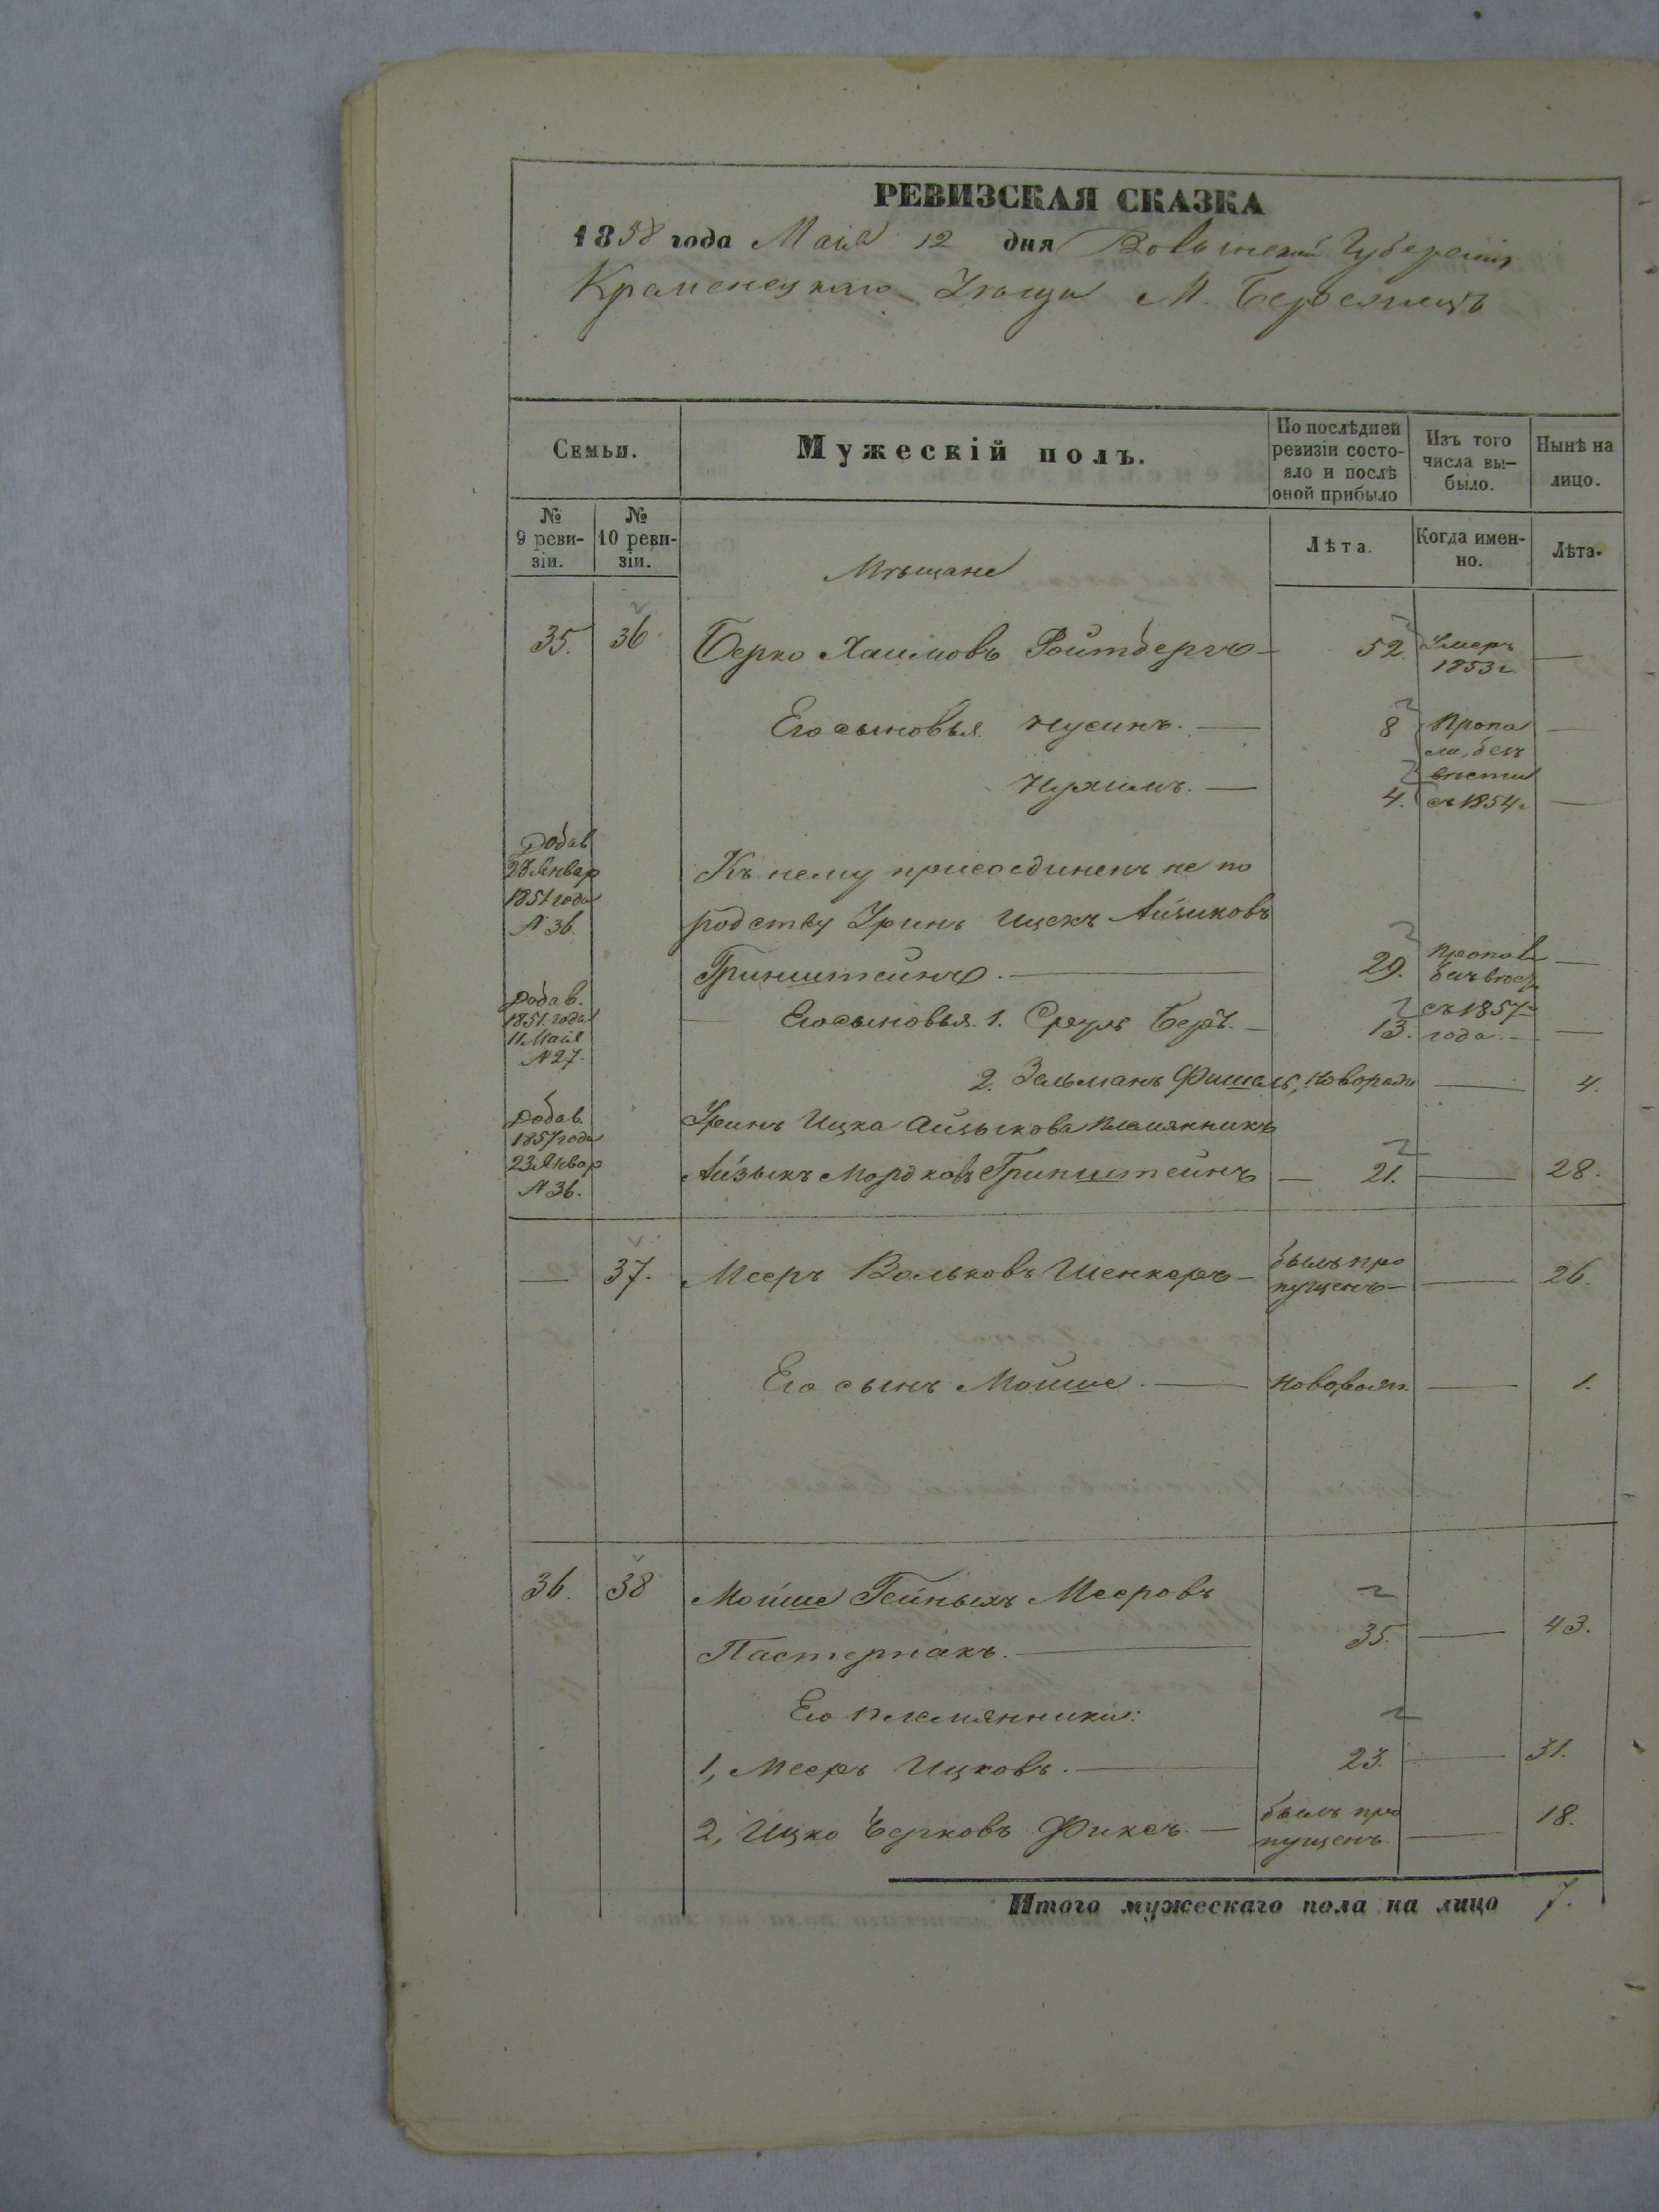 РЕВИЗСКАЯ СКАЗКА
1858 года Маія 12 дня Волынской Губерніи
Кременецкаго Уѣзда М. Бережецъ
Семьи.
Мужескій полъ.
По послѣдней ревизіи состояло и послѣ оной прибыло
Изъ того числа выбыло.
Нынѣ на лицо.
№ 9 ревизіи.
№ 10 ревизіи.
Мѣщане
Лѣта.
Когда именно.
Лѣта.
35. 36 Берко Хаимовъ Ройтбергъ — 52. Умеръ 1853 г. —
Его сыновья Нусинъ. — 8 Пропа —
ли, безъ
вѣсти
Нухимъ. — 4. съ 1854 г —
Добав
23 Январ
1851 года
№ 36.
Къ нему присоединенъ не по
родству Уринъ Ицекъ Айзиковъ
Гринштейнъ. — 29. Пропав —
безъ вѣст
Добав.
1851. года
11 Маія
№ 27.
Его сыновья. 1. Сруль Беръ. — 13. съ 1857 года. — —
2. Зельманъ Фишель, Новорож — 4.
Добав.
1857 года
23 Январ
№ 36.
Уринъ Ицка Айзыкова племянникъ
Айзыкъ Мордковъ Гринштейнъ — 21. — 28.
— 37. Мееръ Вольковъ Шенкеръ — былъ про
пущенъ — — 26.
Его сынъ Мойше. — Новорож. — 1.
36. 38 Мойше Гейныхъ Мееровъ
Пастернакъ. — 35. — 43.
Его племянники:
1, Мееръ Ицковъ. — 23. — 31.
2, Ицко Берковъ Фиксъ. — былъ про
пущенъ — 18.
Итого мужескаго пола на лицо 7.